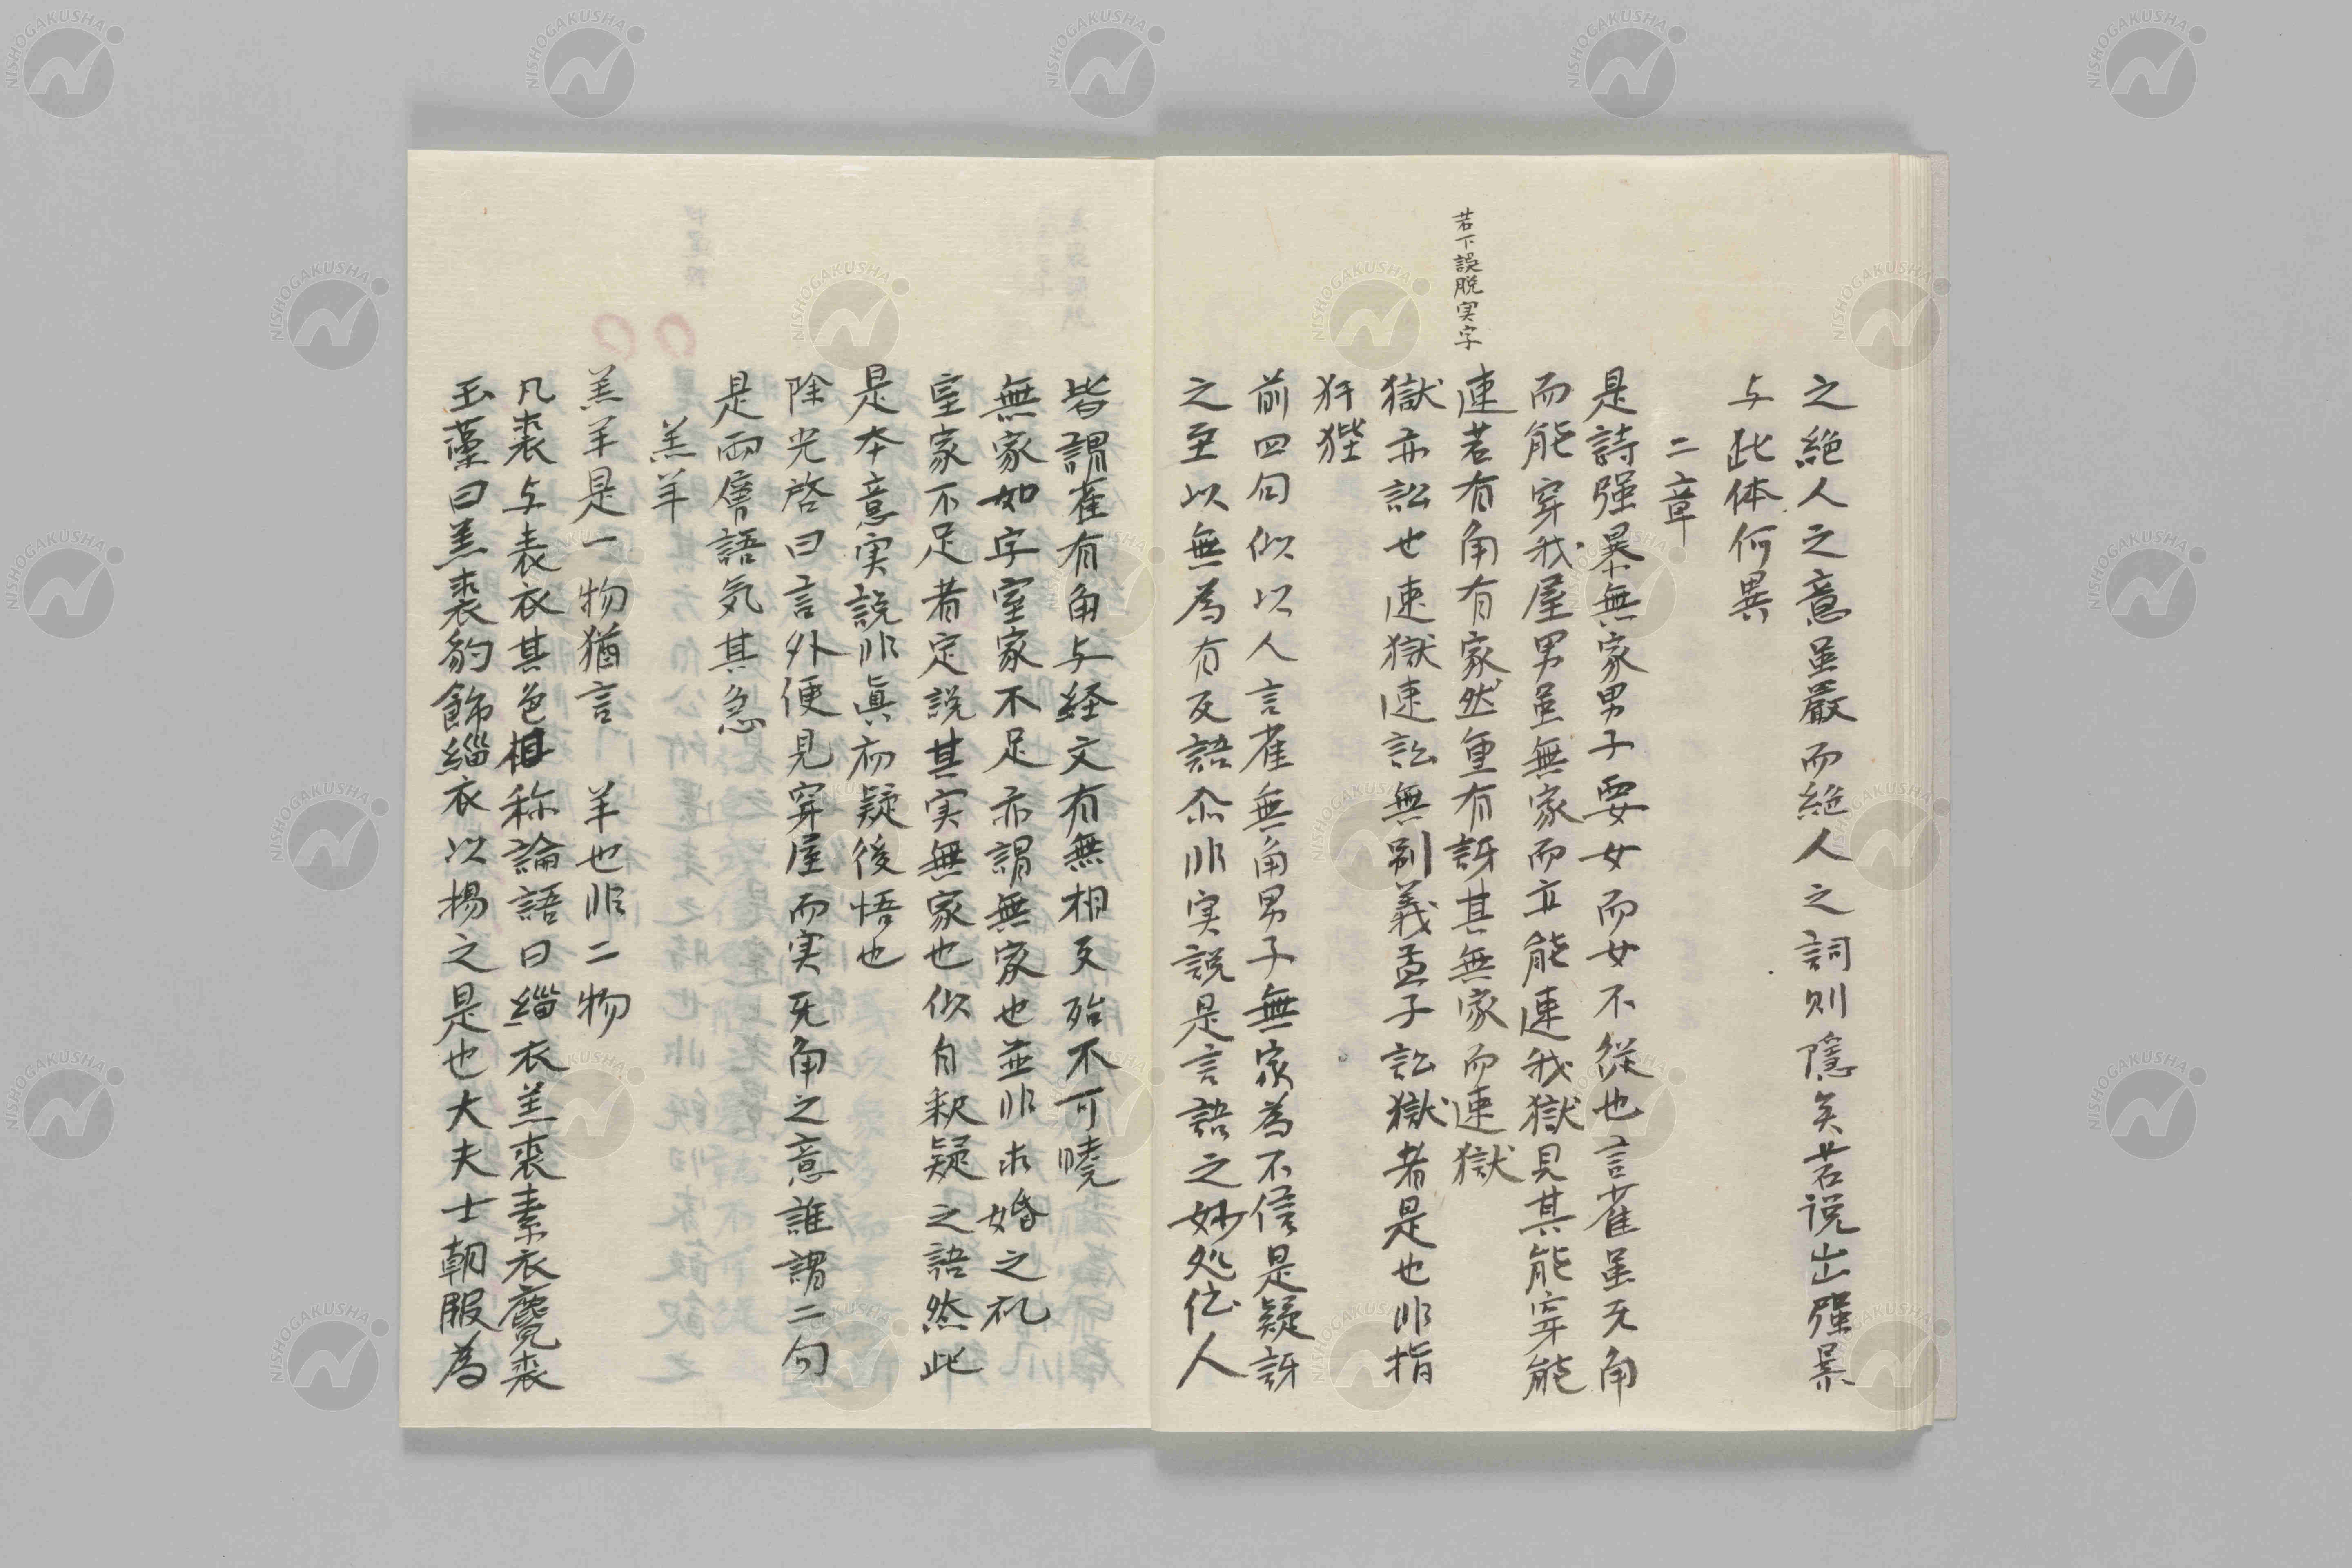 之絶人之意虽嚴而絶人之詞則隠矣若说出强暴
与此体何異
二章
是詩强暴無家男子要女而女不従也言雀虽无角
而能穿我屋男虽無家而亦能速我獄見其能穿能
若下誤脱実字
速若有角有家然重有訝其無家而速獄
獄亦訟也速獄速訟無別義孟子訟獄者是也非指
犴狴
前四句似以人言雀無角男子無家為不信是疑訝
之至以無為有反語尒非実説是言語之妙処佗人
皆謂雀有角与経文有無相反殆不可暁
無家如字室家不足亦謂無家也並非求婚之礼
室家不足者定説其実無家也似自疑之語然此
是本意実説非眞初疑後悟也
除光啓曰言外便見穿屋而実无角之意誰謂二句
是両層語気其急
羔羊
羔羊是一物猶言 羊也非二物
凡裘与表衣其色相称論語曰緇衣羔裘素衣麑裘
玉藻曰羔裘豹飾緇衣以裼之是也大夫士朝服為
NISHOGAKUSHA